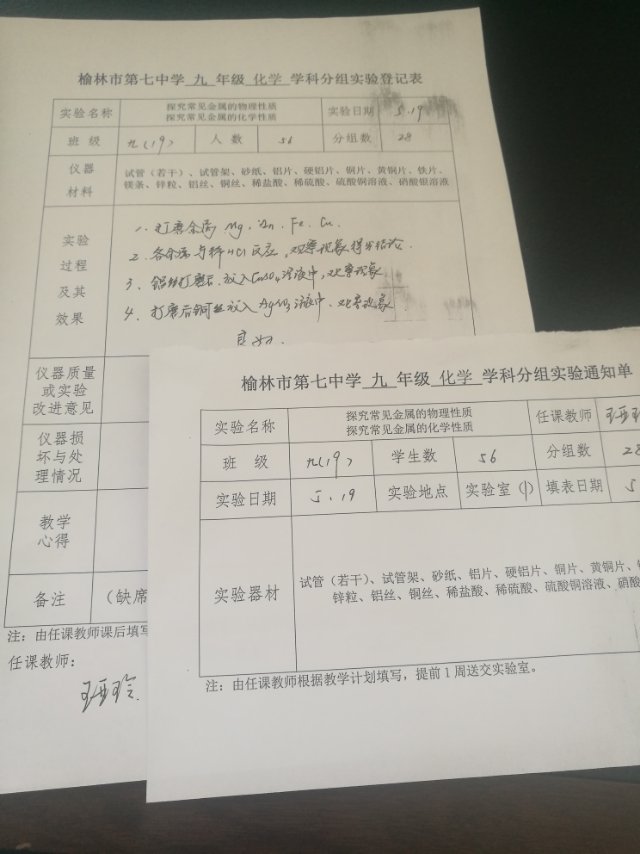 榆林市第七中学 九 年级 化学 学科分组实验登记表
实验名称 探究常见金属的物理性质 实验日期 5.19
探究常见金属的化学性质
班级 九(19) 人数 56 分组数 28
仪器
材料
试管（若干）、试管架、砂纸、铝片、硬铝片、铜片、黄铜片、铁片、
镁条、锌粒、铝丝、铜丝、稀盐酸、稀硫酸、硫酸铜溶液、硝酸银溶液
实验
过程
及其
效果
1. 打磨金属 Mg. Zn. Fe. Cu.
2. 各金属与稀HCl反应，观察现象得出结论.
3. 铝丝打磨后.放入CuSO4溶液中，观察现象
4. 打磨后铜丝放入AgNO3溶液中.观察现象
良好.
仪器质量
或实验
改进意见
仪器损
坏与处
理情况
教学
心得
备注 （缺席
注：由任课教师课后填写
任课教师：
榆林市第七中学 九 年级 化学 学科分组实验通知单
实验名称 探究常见金属的物理性质 任课教师
探究常见金属的化学性质
班级 九(19) 学生数 56 分组数 28
实验日期 5.19 实验地点 实验室(1) 填表日期 5
实验器材
试管（若干）、试管架、砂纸、铝片、硬铝片、铜片、黄铜片、
锌粒、铝丝、铜丝、稀盐酸、稀硫酸、硫酸铜溶液、硝酸
注：由任课教师根据教学计划填写，提前1周送交实验室。